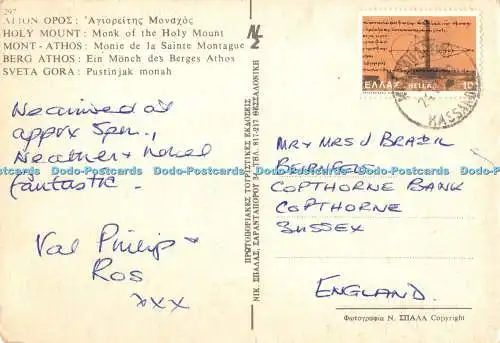 297
ΑΓΙΟΝ ΟΡΟΣ: Ἁγιορείτης Μοναχός
HOLY MOUNT: Monk of the Holy Mount
MONT-ATHOS: Monie de la Sainte Montague
BERG ATHOS: Ein Mönch des Berges Athos
SVETA GORA: Pustinjak monah
We arrived at
approx 5pm.,
Weather & Hotel
fantastic.
Val Philip &
Ros
xxx
ΠΡΩΤΟΠΟΡΙΑΚΕΣ ΤΟΥΡΙΣΤΙΚΕΣ ΕΚΔΟΣΕΙΣ
ΝΙΚ. ΣΠΑΛΑΣ, ΣΑΡΑΝΤΑΠΟΡΟΥ 3 ΤΗΛ. 817-217 ΘΕΣΣΑΛΟΝΙΚΗ
ΕΛΛΑΣ HELLAS 10
KASSAN
MR & MRS J BRAZIL
COPTHORNE BANK
COPTHORNE
SUSSEX
ENGLAND.
Φωτογραφία Ν. ΣΠΑΛΑ Copyright
Dodo-Postcards Dodo-Postcards Dodo-Postcards Dodo-Postcards